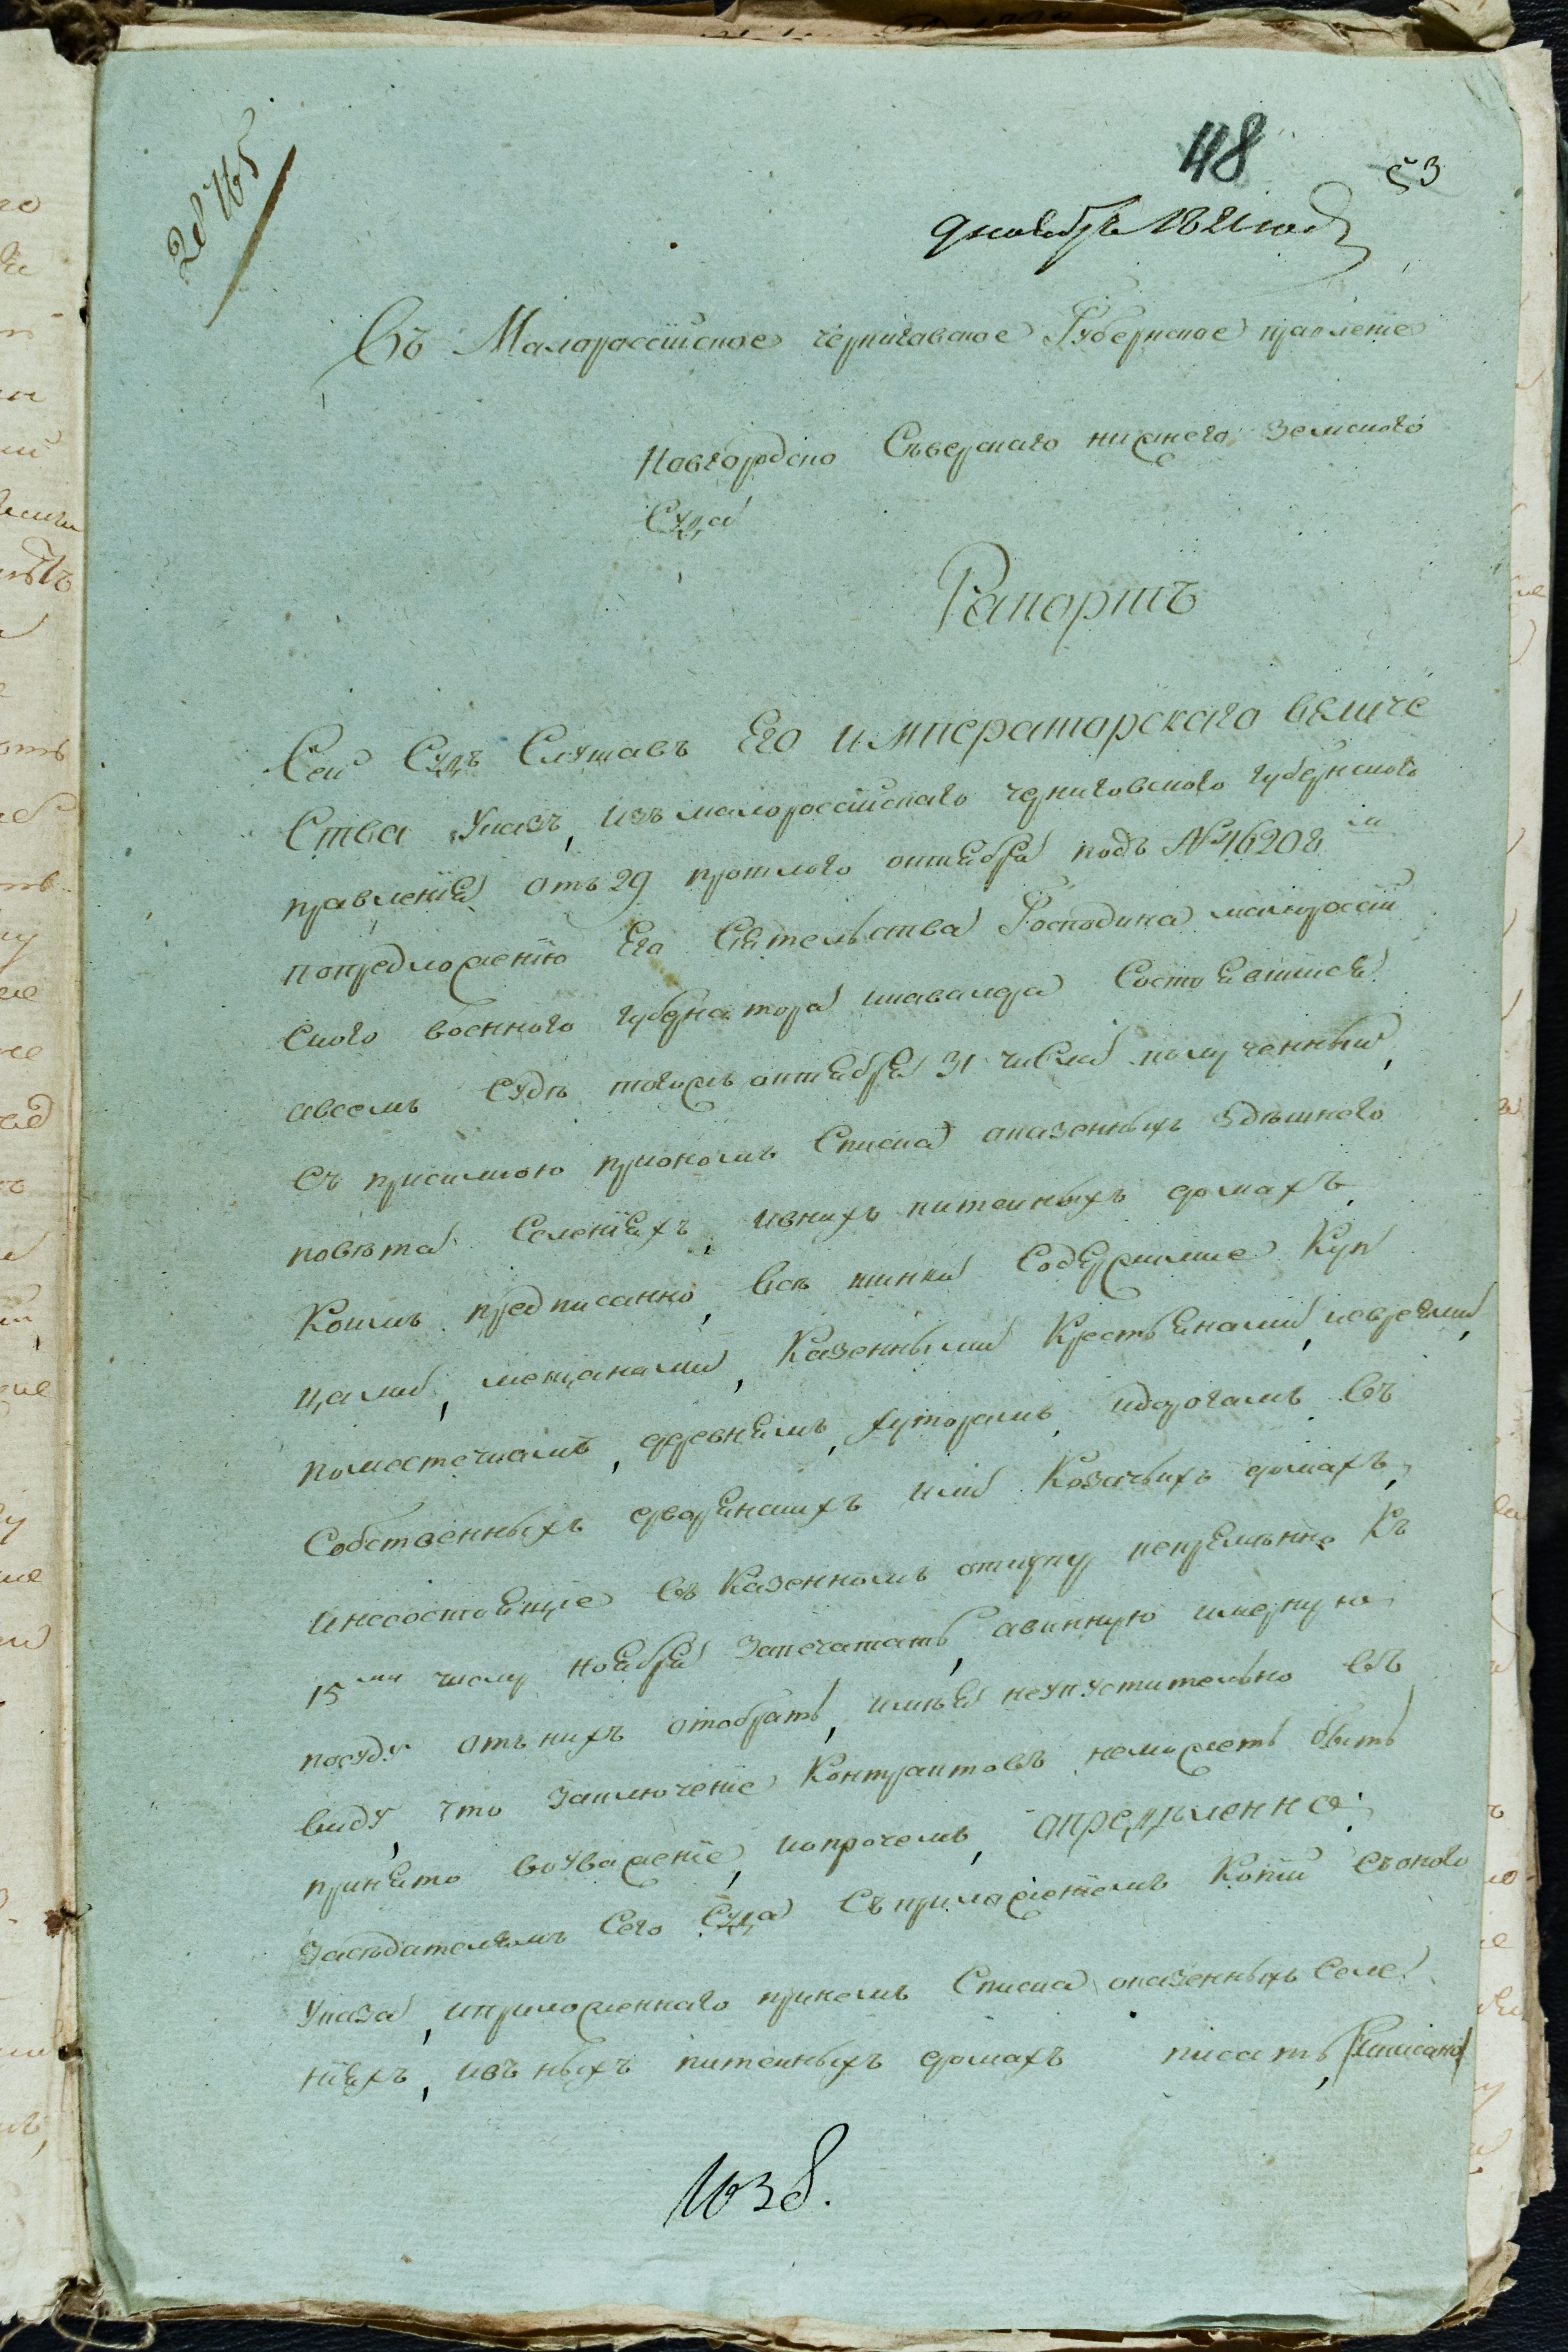 28765
48
53
декабрь 1821 года
Въ Малороссійское черниговское Губернское правленіе
Новгородско Северскаго нижнего земского
Суда
Рапортъ
Сей Судъ Слушавъ Его императорскаго величе
Ства Указъ, изъ малороссійскаго черниговского губернского
правленія отъ 29 прошлого октября подъ №46208м
попредложенію Его Сіятельства Господина малоросій
ского военного губернатора икавалера Состоявшися
авсемъ Судѣ тогожъ октября 31 числа полученный,
Съ присилкою приономъ Списка оказенныхъ здѣшнего
повѣта Селеніяхъ, ивнихъ питейныхъ домахъ
Коимъ предписанно, всѣ шинки Содержимие Куп
цами, мещанами, Казенными Крестьянами, иевреями,
поместечкамъ, деревнямъ, хуторамъ, идорогамъ Въ
Собственныхъ дворянскихъ или Козачьихъ домахъ,
инесостоящіе въ Казенномъ откупу непремѣнно Къ
15му числу ноября запечатать, авинную имерную
посуду отъ нихъ отобрать, имѣя неупустительно въ
виду, что заключеніе Контрактовъ неможетъ быть
принято воуваженіе, ипрочемъ, определенно:
Засѣдателямъ Сего Суда Съприложеніемъ Копій Съоного
Указа, иприложеннаго принемъ Списка оказенныхъ Селе
ніяхъ, ивъ ныхъ питейныхъ домахъ писать,
1038.